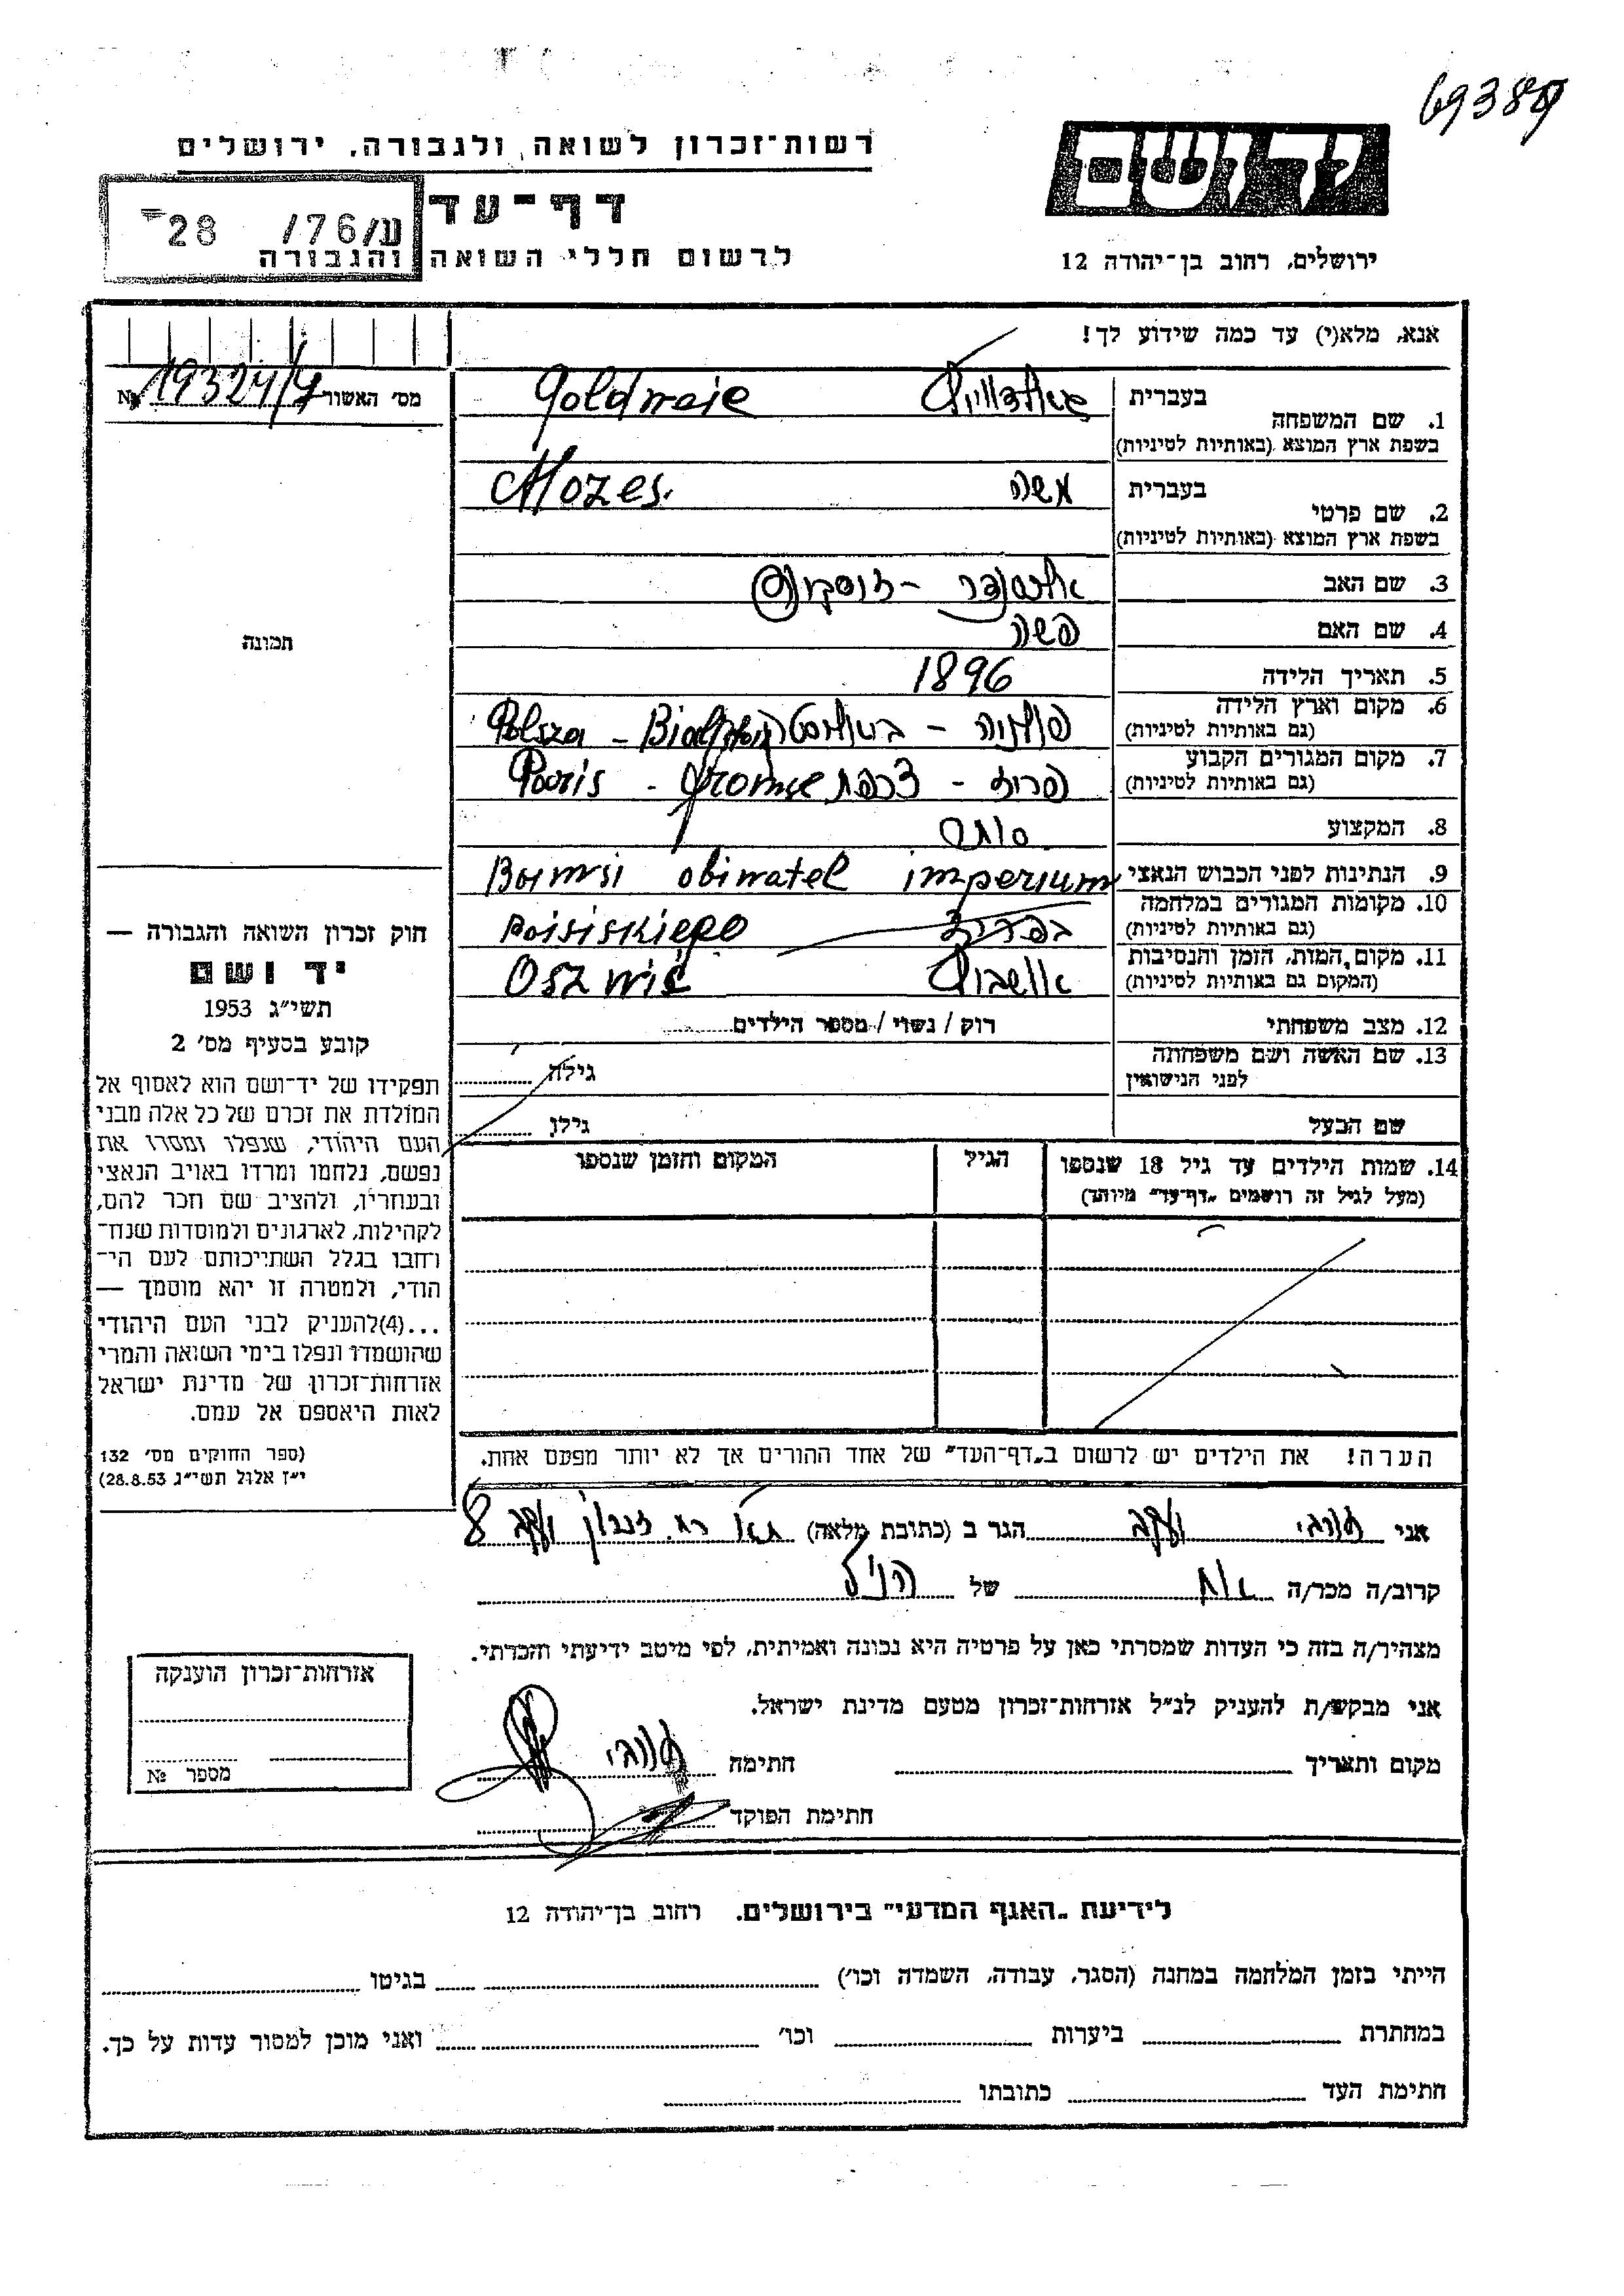 69389
רשות־זכרון לשואה ולגבורה, ירושלים
יד ושם
דף־עד
28 /76/ע
לרשום חללי השואה והגבורה
ירושלים, רחוב בן־יהודה 12
אנא, מלא(י) עד כמה שידוע לך!
מס׳ האשור № 19324/4
1. שם המשפחה
בעברית
בשפת ארץ המוצא (באותיות לטיניות)
Goldwaie
2. שם פרטי
בעברית משה
בשפת ארץ המוצא (באותיות לטיניות)
Mozes.
3. שם האב אלכסנדר - זיסקינד
4. שם האם פשה
תמונה
5. תאריך הלידה 1896
6. מקום וארץ הלידה
(גם באותיות לטיניות)
פולניה - ביאליסטוק Polsza -
7. מקום המגורים הקבוע
(גם באותיות לטיניות)
פריז - צרפת Paris -
8. המקצוע סוחר
9. הנתינות לפני הכבוש הנאצי imperium
10. מקומות המגורים במלחמה
(גם באותיות לטיניות)
בפריז
11. מקום, המות, הזמן והנסיבות
(המקום גם באותיות לטיניות)
Oszwię
12. מצב משפחתי רוק / נשוי / מספר הילדים
13. שם האשה ושם משפחתה
לפני הנישואין
גילה
שם הבעל גילו
חוק זכרון השואה והגבורה —
יד ושם
תשי״ג 1953
קובע בסעיף מס׳ 2
תפקידו של יד־ושם הוא לאסוף אל
המולדת את זכרם של כל אלה מבני
העם היהודי, שנפלו ומסרו את
נפשם, נלחמו ומרדו באויב הנאצי
ובעוזריו, ולהציב שם וזכר להם,
לקהילות, לארגונים ולמוסדות שנח־
רחבו בגלל השתייכותם לעם הי־
הודי, ולמטרה זו יהא מוסמך —
...(4)להעניק לבני העם היהודי
שהושמדו ונפלו בימי השואה והמרי
אזרחות־זכרון של מדינת ישראל
לאות היאספם אל עמם.
(ספר החוקים מס׳ 132
י״ז אלול תשי״ג 28.8.53)
14. שמות הילדים עד גיל 18 שנספו
(מעל לגיל זה רושמים „דף־עד״ מיוחד)
הגיל
המקום והזמן שנספו
הערה! את הילדים יש לרשום ב„דף־העד״ של אחד ההורים אך לא יותר מפעם אחת.
אני יעקב הגר ב (כתובת מלאה) זכרון יעקב 8
קרוב/ה מכר/ה אח של הנ״ל
מצהיר/ה בזה כי העדות שמסרתי כאן על פרטיה היא נכונה ואמיתית, לפי מיטב ידיעתי והכרתי.
אני מבקש/ת להעניק לנ״ל אזרחות־זכרון מטעם מדינת ישראל.
מקום ותאריך חתימה
חתימת הפוקד
אזרחות־זכרון הוענקה
מספר №
לידיעת „האגף המדעי״ בירושלים. רחוב בן־יהודה 12
הייתי בזמן המלחמה במחנה (הסגר, עבודה, השמדה וכו׳) בגיטו
במחתרת ביערות וכו׳ ואני מוכן למסור עדות על כך.
חתימת העד כתובתו